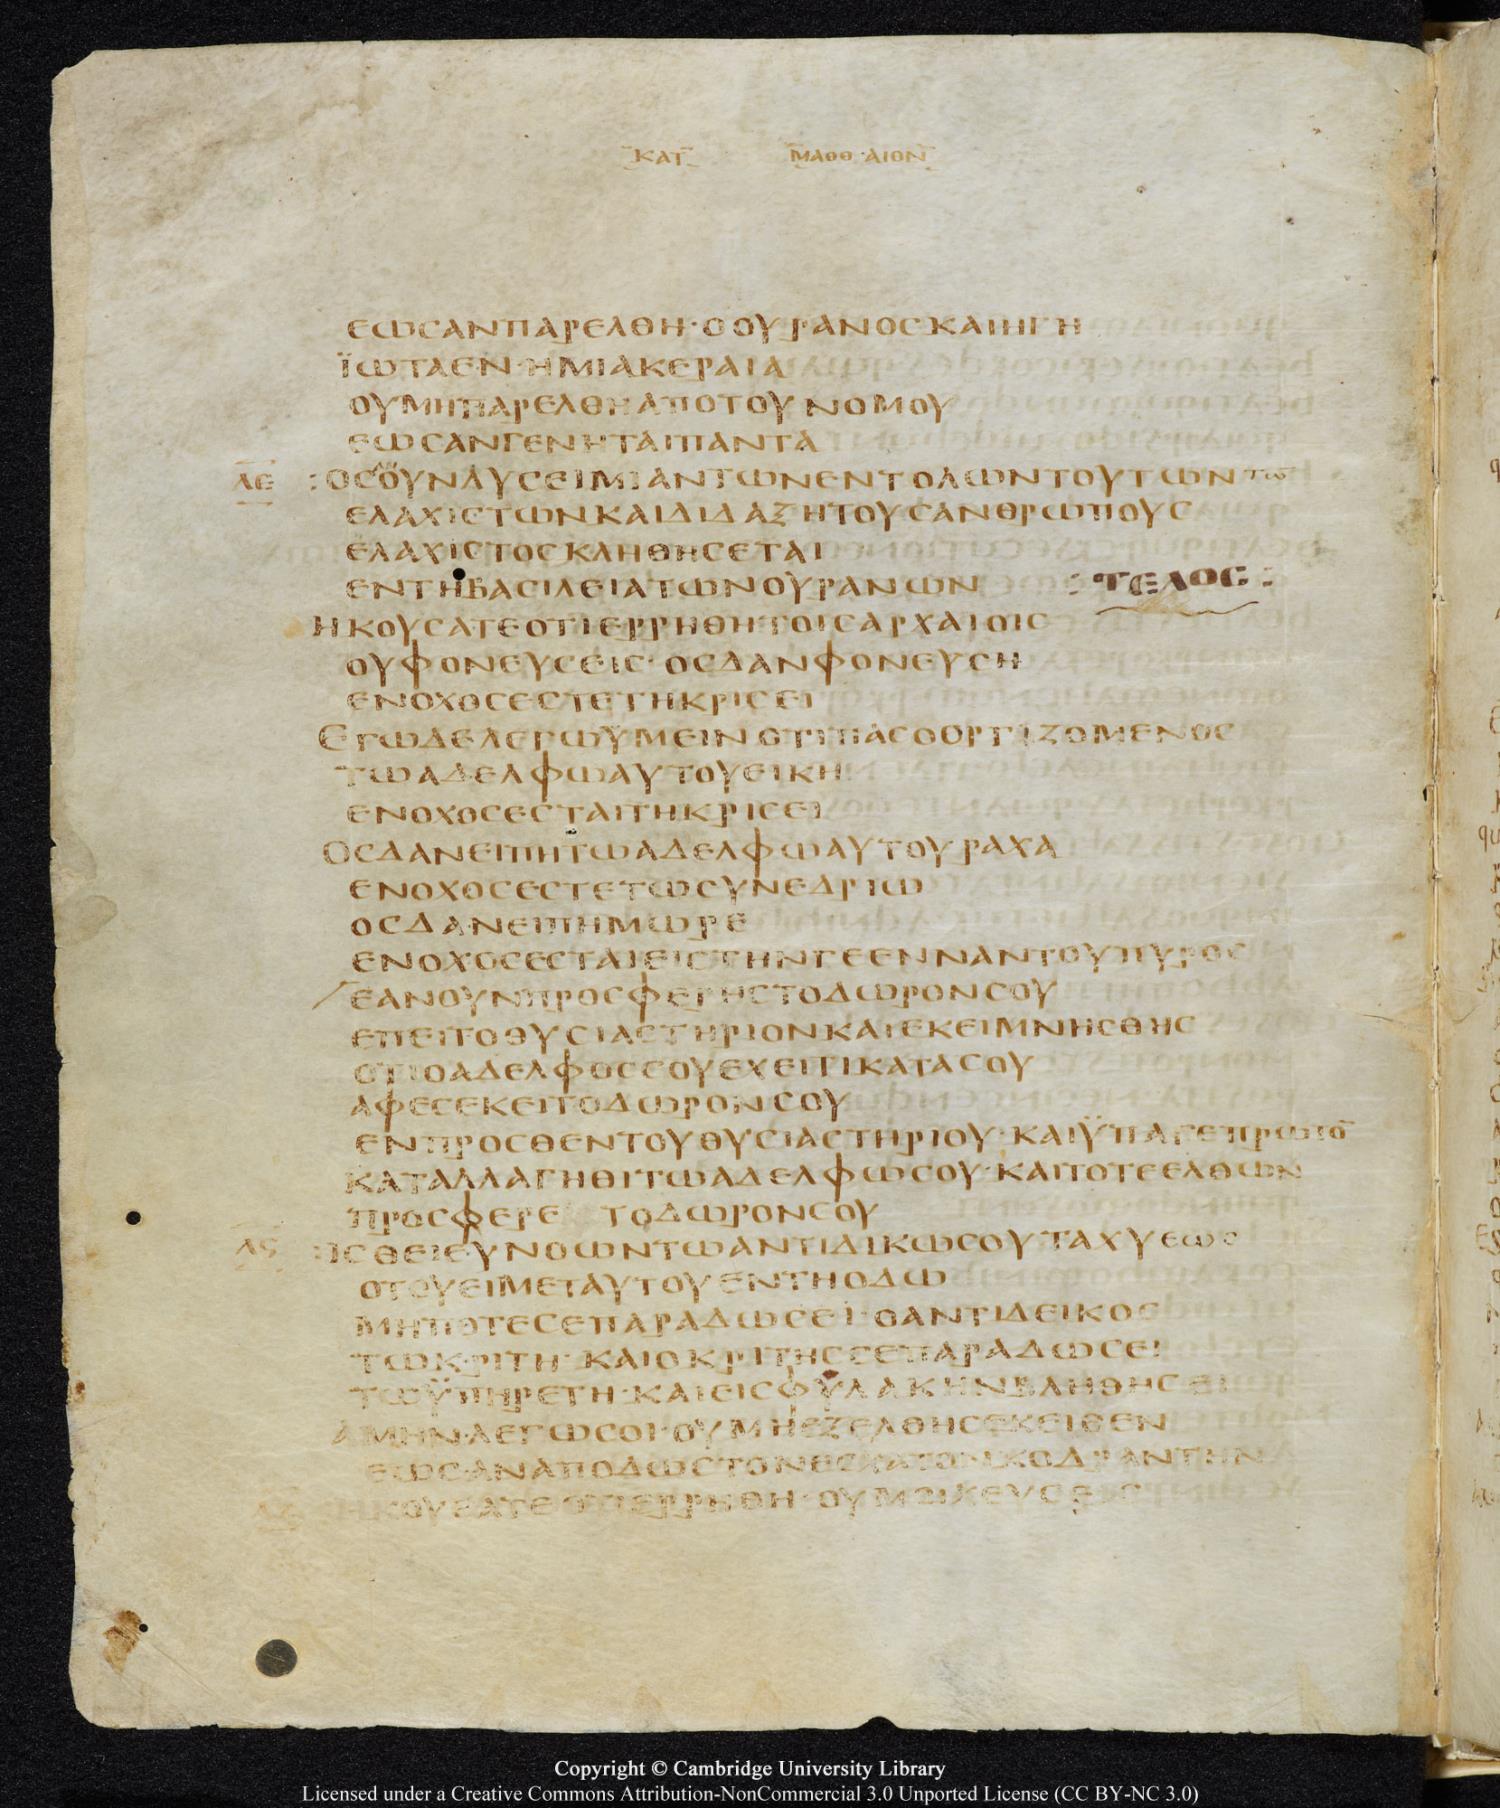 ΚΑΤ ΜΑΘΘ·ΑΙΟΝ
ΕΩΣΑΝΠΑΡΕΛΘΗ·ΟΟΥΡΑΝΟΣΚΑΙΗΓΗ
ΪΩΤΑΕΝ·ΗΜΙΑΚΕΡΑΙΑ
ΟΥΜΗΠΑΡΕΛΘΗΑΠΟΤΟΥΝΟΜΟΥ
ΕΩΣΑΝΓΕΝΗΤΑΙΠΑΝΤΑ
ΛΕ :ΟΣΟΥΝΛΥΣΕΙΜΙΑΝΤΩΝΕΝΤΟΛΩΝΤΟΥΤΩΝΤΩ̅
ΕΛΑΧΙΣΤΩΝΚΑΙΔΙΔΑΞΗΤΟΥΣΑΝΘΡΩΠΟΥΣ
ΕΛΑΧΙΣΤΟΣΚΛΗΘΗΣΕΤΑΙ
ΕΝΤΗΒΑΣΙΛΕΙΑΤΩΝΟΥΡΑΝΩΝ : ΤΕΛΟΣ :
ΗΚΟΥΣΑΤΕΟΤΙΕΡΡΗΘΗΤΟΙΣΑΡΧΑΙΟΙΣ
ΟΥΦΟΝΕΥΣΕΙΣ·ΟΣΔΑΝΦΟΝΕΥΣΗ
ΕΝΟΧΟΣΕΣΤΕΤΗΚΡΙΣΕΙ
ΕΓΩΔΕΛΕΓΩΫΜΕΙΝΟΤΙΠΑΣΟΟΡΓΙΖΟΜΕΝΟΣ
ΤΩΑΔΕΛΦΩΑΥΤΟΥΕΙΚΗ
ΕΝΟΧΟΣΕΣΤΑΙΤΗΚΡΙΣΕΙ
ΟΣΔΑΝΕΙΠΗΤΩΑΔΕΛΦΩΑΥΤΟΥΡΑΧΑ
ΕΝΟΧΟΣΕΣΤΕΤΩΣΥΝΕΔΡΙΩ
ΟΣΔΑΝΕΙΠΗΜΩΡΕ
ΕΝΟΧΟΣΕΣΤΑΙΕΙΣΤΗΝΓΕΕΝΝΑΝΤΟΥΠΥΡΟΣ
ΕΑΝΟΥΝΠΡΟΣΦΕΡΗΣΤΟΔΩΡΟΝΣΟΥ
ΕΠΕΙΤΟΘΥΣΙΑΣΤΗΡΙΟΝΚΑΙΕΚΕΙΜΝΗΣΘΗΣ
ΟΤΙΟΑΔΕΛΦΟΣΣΟΥΕΧΕΙΤΙΚΑΤΑΣΟΥ
ΑΦΕΣΕΚΕΙΤΟΔΩΡΟΝΣΟΥ
ΕΝΠΡΟΣΘΕΝΤΟΥΘΥΣΙΑΣΤΗΡΙΟΥ·ΚΑΙΫΠΑΓΕΠΡΩΤΟ̅
ΚΑΤΑΛΛΑΓΗΘΙΤΩΑΔΕΛΦΩΣΟΥ·ΚΑΙΤΟΤΕΕΛΘΩΝ
ΠΡΟΣΦΕΡΕ ΤΟΔΩΡΟΝΣΟΥ
ΛϚ :ΙΣΘΕΙΕΥΝΟΩΝΤΩΑΝΤΙΔΙΚΩΣΟΥΤΑΧΥΕΩΣ
ΟΤΟΥΕΙΜΕΤΑΥΤΟΥΕΝΤΗΟΔΩ
ΜΗΠΟΤΕΣΕΠΑΡΑΔΩΣΕΙ·ΟΑΝΤΙΔΕΙΚΟΣ
ΤΩΚΡΙΤΗ·ΚΑΙΟΚΡΙΤΗΣΣΕΠΑΡΑΔΩΣΕΙ
ΤΩΫΠΗΡΕΤΗ·ΚΑΙΕΙΣΦΥΛΑΚΗΝΒΛΗΘΗΣΕΙ
ΑΜΗΝ·ΛΕΓΩΣΟΙ·ΟΥΜΗΕΞΕΛΘΗΣΕΚΕΙΘΕΝ
ΕΩΣ·ΑΝΑΠΟΔΩΣΤΟΝΕΣΧΑΤΟΝΚΟΔΡΑΝΤΗΝ
ΗΚΟΥΣΑΤΕΟΤΙΕΡΡΗΘΗ·ΟΥΜΟΙΧΕΥΣΕΙΣ
Copyright © Cambridge University Library
Licensed under a Creative Commons Attribution-NonCommercial 3.0 Unported License (CC BY-NC 3.0)